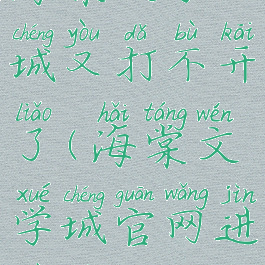 chéng yòu dǎ bù kāi
城又打不开
liǎo hǎi táng wén
了(海棠文
xué chéng guān wǎng jìn
学城官网进